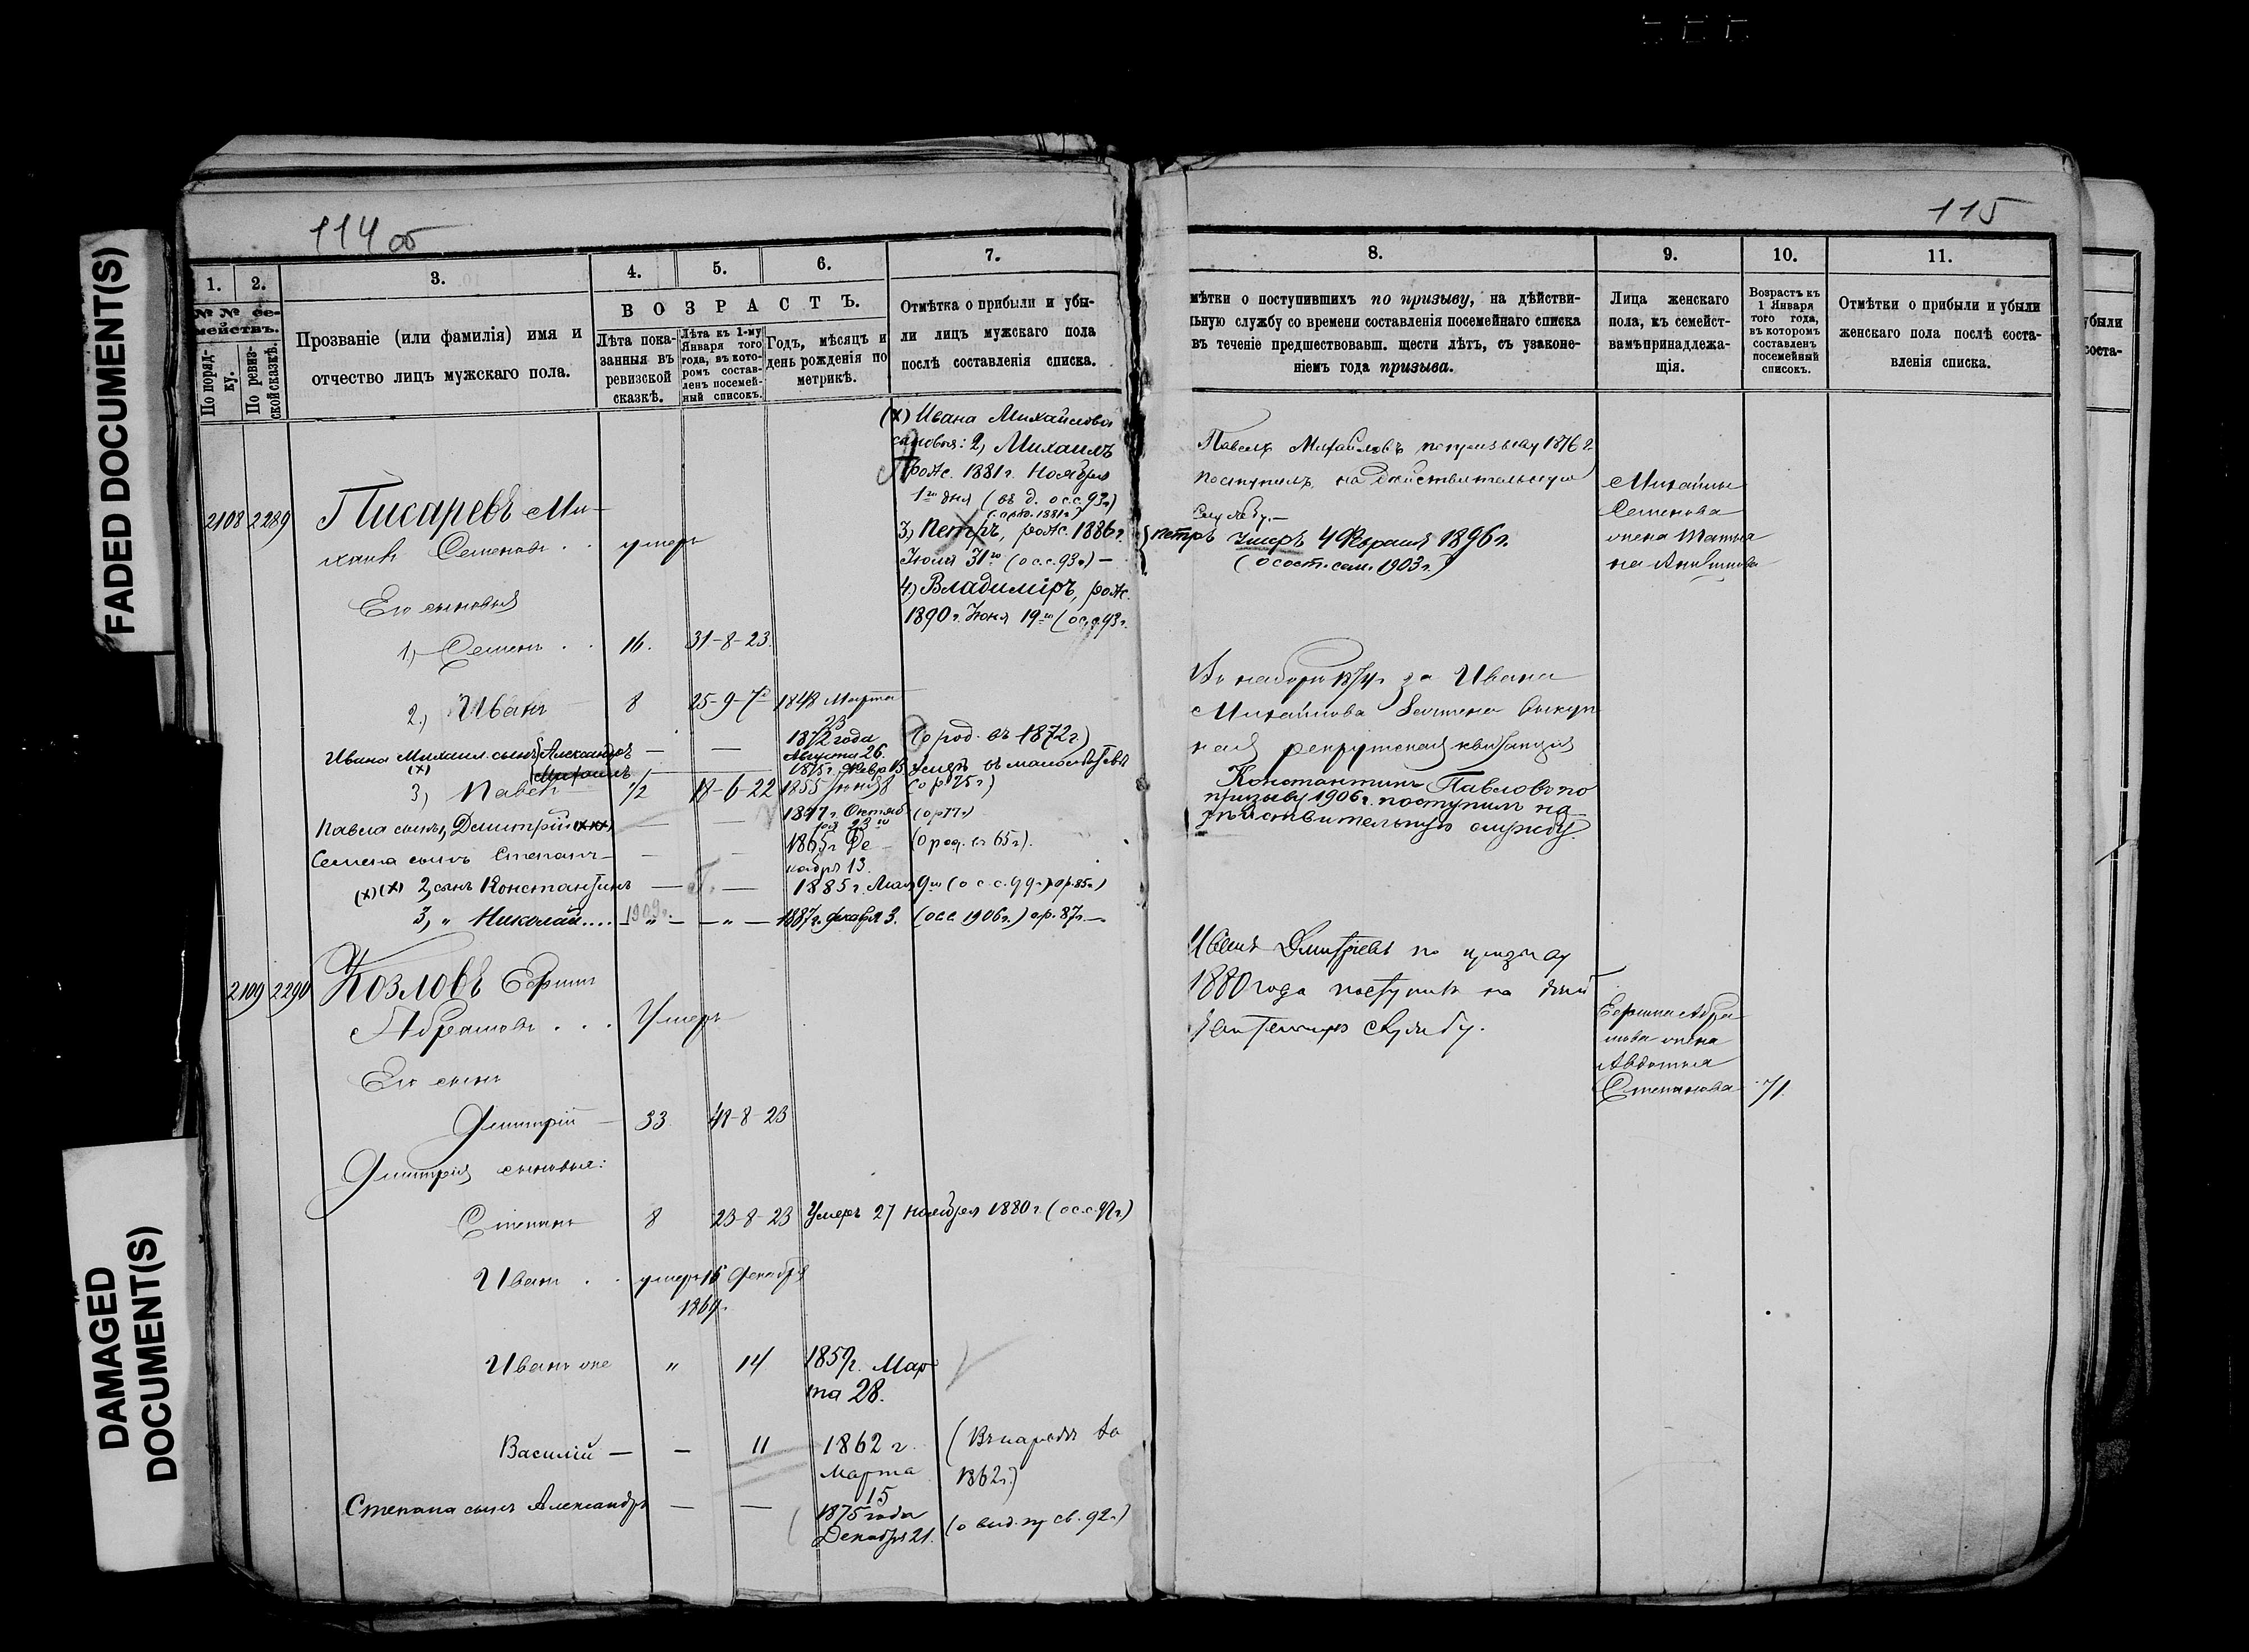 FADED DOCUMENT(S)
DAMAGED
DOCUMENT(S)
114 об
1.
2.
3.
4.
5.
6.
7.
№ № се-
мействъ.
По поряд-
ку.
По ревиз-
ской сказкѣ.
Прозваніе (или фамилія) имя и
отчество лицъ мужскаго пола.
ВОЗРАСТЪ.
Лѣта пока-
занныя въ
ревизской
сказкѣ.
Лѣта къ 1-му
Января того
года, въ кото-
ромъ состав-
ленъ посемей-
ный списокъ.
Годъ, мѣсяцъ и
день рожденія по
метрикѣ.
Отмѣтка о прибыли и убы-
ли лицъ мужскаго пола
послѣ составленія списка.
(х) Ивана Михайлова
сыновья: 2) Михаилъ
рожс. 1881 г. Ноября
1го дня (въ д. о с.с. 93 г.)
3) Петръ, рожс. 1886 г.
Іюля 31го (о с.с. 93 г.) —
4) Владиміръ, рожс.
1890 г. Іюня 19го (о с.с. 93 г.
2108 2289 Писаревъ Ми-
хаилъ Семеновъ . . умеръ
Его сыновья
1) Семенъ . . 16. 31-8-23.
2) Иванъ 8 25-9-7 1848 Марта
23
Ивана Михаил. сынъ Александръ — — 1872 года Августа 26. (о род. въ 1872 г.)
(х) Михаилъ 1875 г. Февр 15 умеръ въ малолѣтствѣ
3) Павелъ 1/2 18-6-22 1855 (о р 75 г.)
Павла сынъ 1, Дмитрій (хх) — — 1877 г. Октяб
ря 23го (о р 77 г.)
Семена сынъ Степанъ — — 1865 г. Де-
кабря 13. (о род. въ 65 г.).
(х)(х) 2, сынъ Константинъ — — 1885 г. Мая 9го (о с.с. 99 г.) о р. 85 г.)
3, „ Николай.... 1909 г. „ — „ — 1887 г. Декабря 3. (о с.с 1906 г.) о р. 87 г. —
2109 2290 Козловъ Ермилъ
Абрамовъ . . . Умеръ
Его сынъ
Дмитрій — 33 48-8-23
Дмитрія сыновья:
Степанъ 8 23-8-23 Умеръ 27 Ноября 1880 г. (о с.с. 92 г.)
Иванъ . . умеръ 15 Декабря
1869.
Иванъ же „ 14 1857 г. Мар-
та 28.
Василій — — 11 1862 г.
Марта
15
1862 г.)
Степана сынъ Александръ — — 1875 года
Декабря 21. (о выд. св. 92 г.)
115
8.
9.
10.
11.
мѣтки о поступившихъ по призыву, на дѣйстви-
льную службу со времени составленія посемейнаго списка
въ теченіе предшествовавш. шести лѣтъ, съ узаконе-
ніемъ года призыва.
Лица женскаго
пола, къ семейст-
вамъ принадлежа-
щія.
Возрастъ къ
1 Января
того года,
въ которомъ
составленъ
посемейный
списокъ.
Отмѣтки о прибыли и убыли
женскаго пола послѣ соста-
вленія списка.
убыли
соста-
Павелъ Михайловъ по призыву 1876 г.
поступилъ на дѣйствительную
службу. —
Петръ умеръ 4 Февраля 1896 г.
(о сост. сем. 1903 г.)
Михайлы
Семенова
жена Татья
на
Въ наборъ 1874 г. за Ивана
Михайлова зачтена выкуп
ная рекрутская квитанція
Константинъ Павловъ по
призыву 1906 г. поступилъ на
дѣйствительную службу.
Иванъ Дмитріевъ по призыву
1880 года поступилъ на дѣйс
твительную службу.
Ермила Абра
мова жена
Авдотья
Степанова 71.